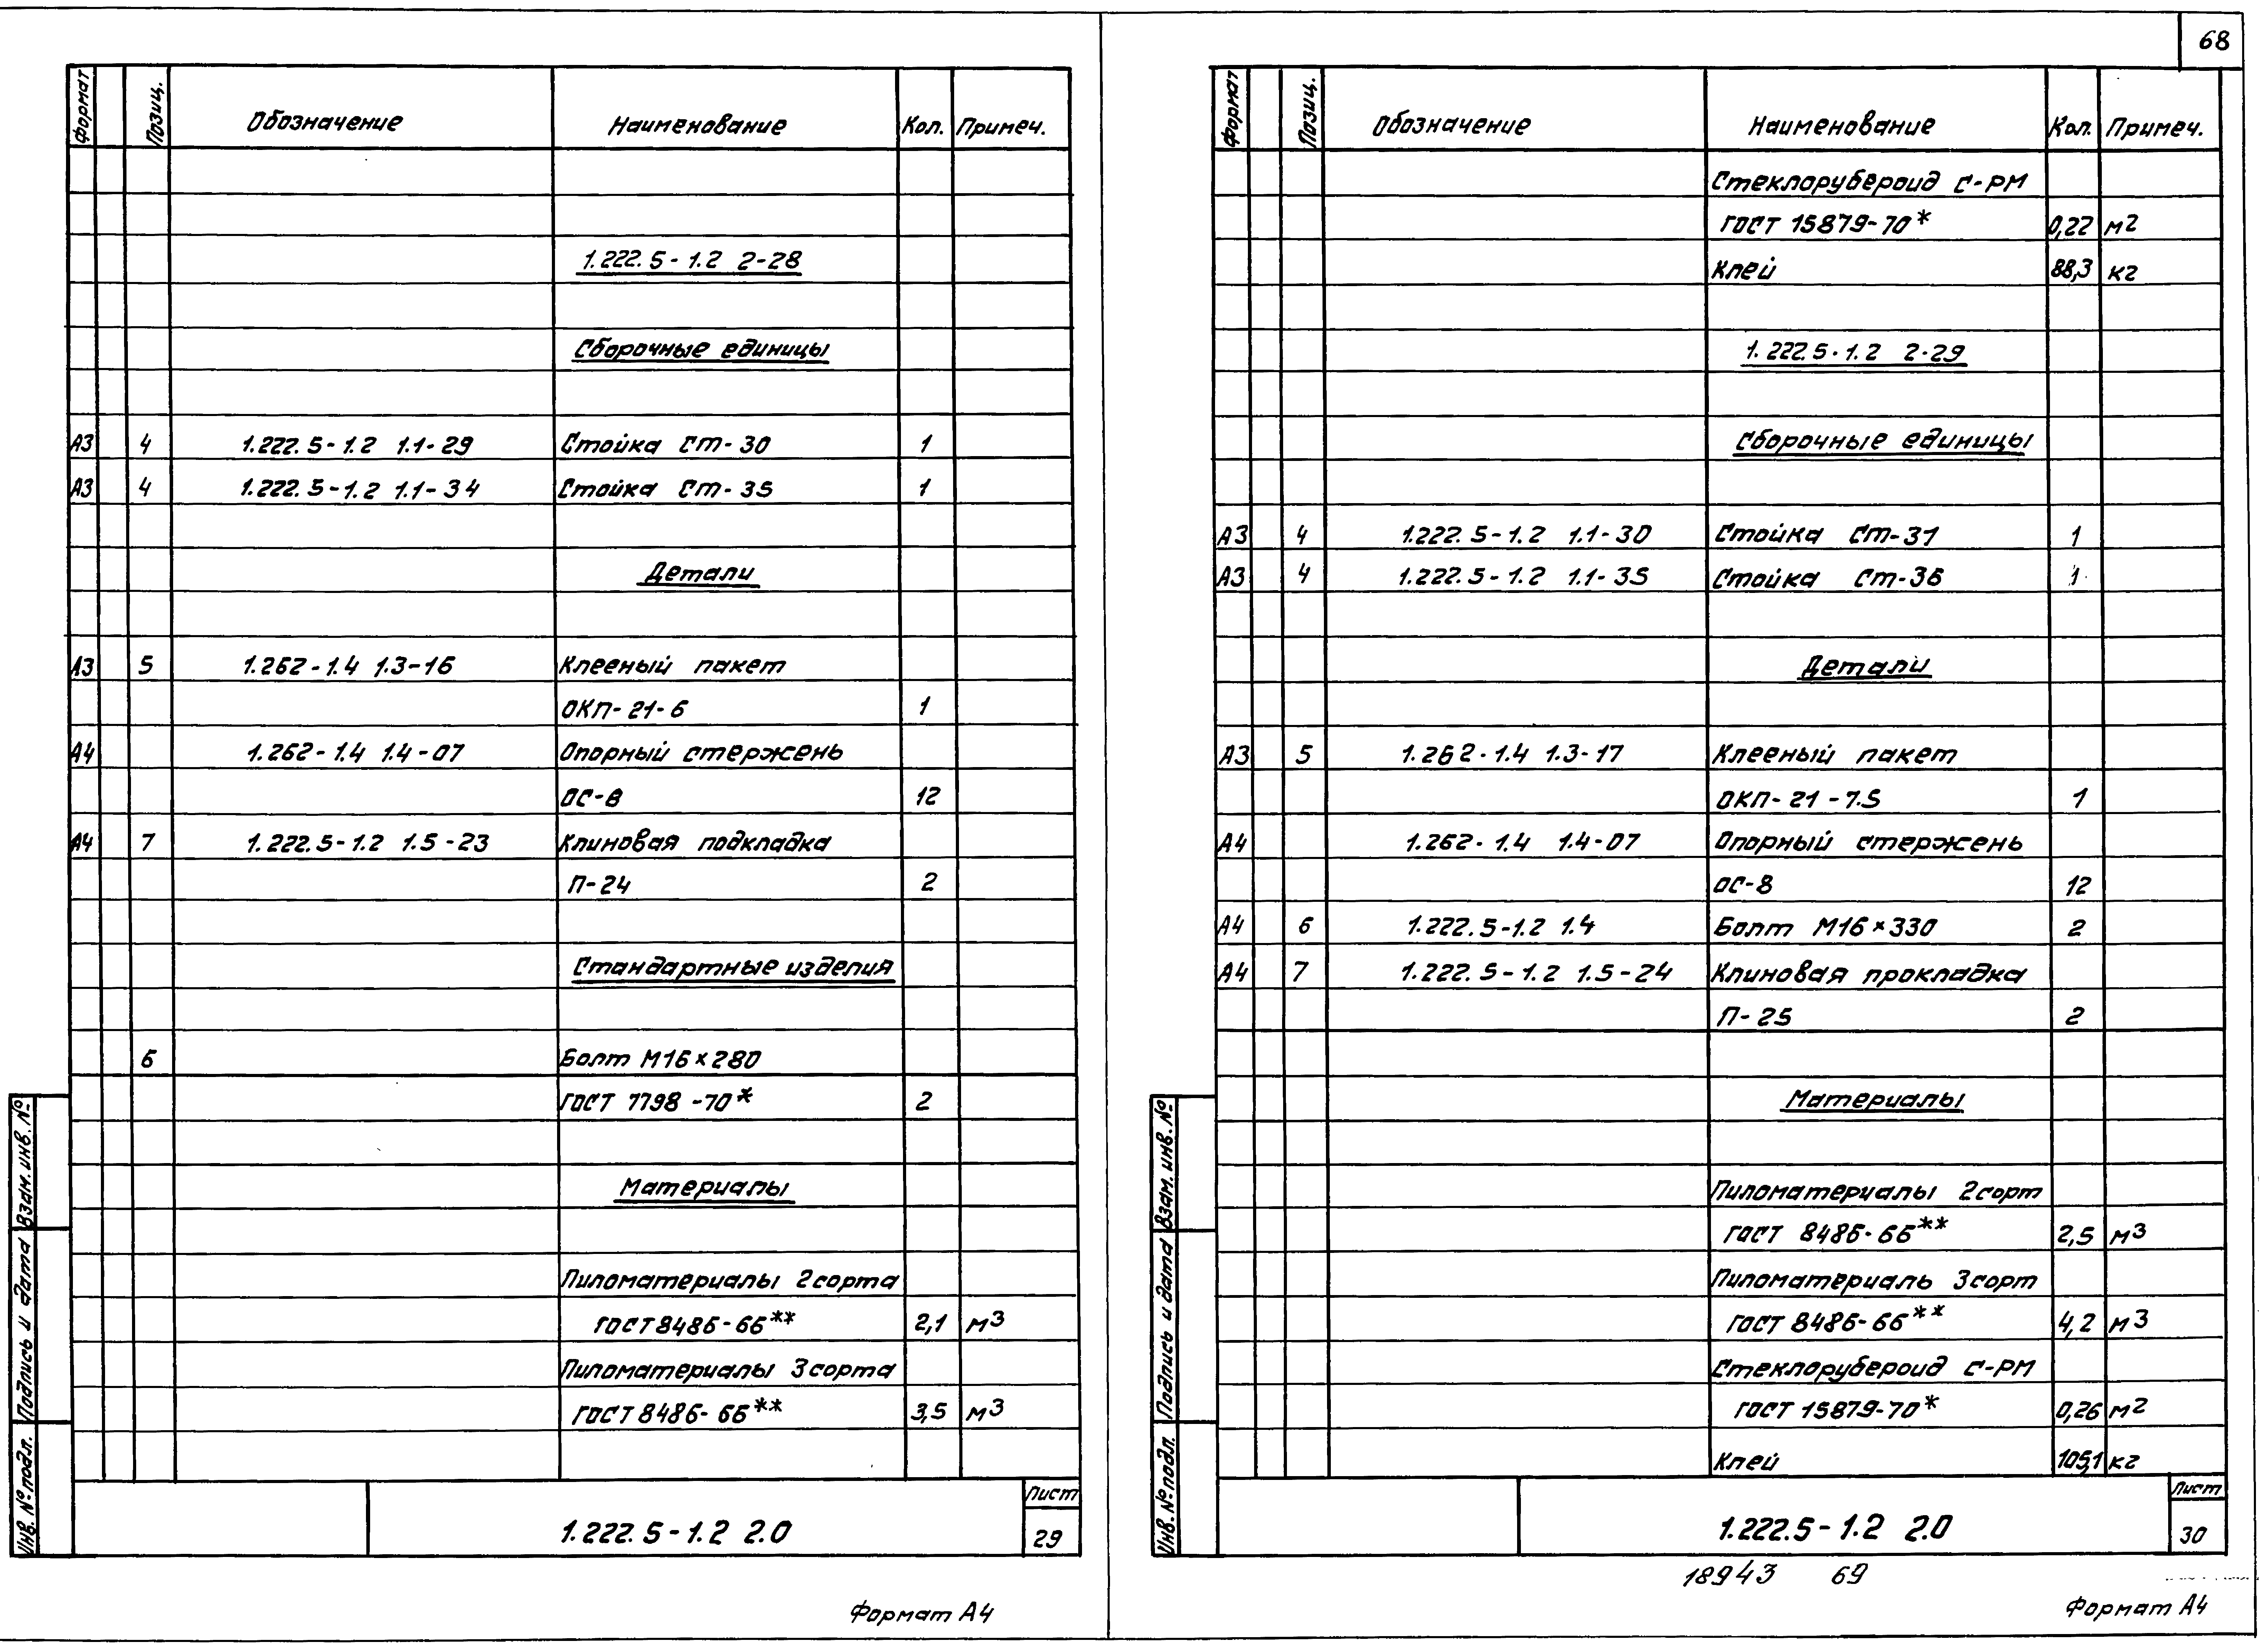 68
Формат Позиц. Обозначение Наименование Кол. Примеч.
1.222.5-1.2 2-28
Сборочные единицы
А3 4 1.222.5-1.2 1.1-29 Стойка Ст-30 1
А3 4 1.222.5-1.2 1.1-34 Стойка Ст-35 1
Детали
А3 5 1.262-1.4 1.3-16 Клееный пакет
ОКП-21-6 1
А4 1.262-1.4 1.4-07 Опорный стержень
ОС-8 12
А4 7 1.222.5-1.2 1.5-23 Клиновая подкладка
П-24 2
Стандартные изделия
6 Болт М16×280
ГОСТ 7798-70* 2
Материалы
Пиломатериалы 2сорта
ГОСТ 8486-66** 2,1 м3
Пиломатериалы 3сорта
ГОСТ 8486-66** 3,5 м3
Взам. инв. №
Подпись и дата
Инв. № подл.
1.222.5-1.2 2.0
Лист
29
Формат А4
Формат Позиц. Обозначение Наименование Кол. Примеч.
Стеклорубероид С-РМ
ГОСТ 15879-70* 0,22 м2
Клей 88,3 кг
1.222.5-1.2 2-29
Сборочные единицы
А3 4 1.222.5-1.2 1.1-30 Стойка Ст-31 1
А3 4 1.222.5-1.2 1.1-35 Стойка Ст-36 1
Детали
А3 5 1.262-1.4 1.3-17 Клееный пакет
ОКП-21-7.5 1
А4 1.262-1.4 1.4-07 Опорный стержень
ОС-8 12
А4 6 1.222.5-1.2 1.4 Болт М16×330 2
А4 7 1.222.5-1.2 1.5-24 Клиновая прокладка
П-25 2
Материалы
Пиломатериалы 2сорт
ГОСТ 8486-66** 2,5 м3
Пиломатериаль 3сорт
ГОСТ 8486-66** 4,2 м3
Стеклорубероид С-РМ
ГОСТ 15879-70* 0,26 м2
Клей 105,1 кг
Взам. инв. №
Подпись и дата
Инв. № подл.
1.222.5-1.2 2.0
Лист
30
18943 69
Формат А4